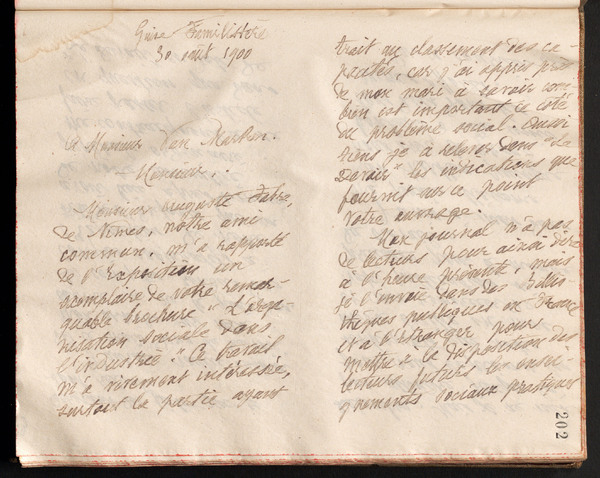 Guise Familistère
30 août 1900
A Monsieur Van Marken.
Monsieur,
Monsieur Auguste Fabre,
de Nîmes, notre ami
commun, m'a rapporté
de l'Exposition un
exemplaire de votre remar-
quable brochure "L'orga-
nisation sociale dans
l'industrie." Ce travail
m'a vivement intéressée,
surtout la partie ayant
trait au classement des ca-
pacités, car j'ai appris près
de mon mari à savoir com-
bien est important ce côté
du problème social. Aussi
tiens-je à relever dans "Le
Devoir" les indications que
fournit sur ce point
votre ouvrage.
Mon journal n'a pas
de lecteurs pour ainsi dire
à l'heure présente, mais
je l'envoie dans des Biblio-
thèques publiques en France
et à l'étranger pour
mettre à la disposition des
lecteurs futurs les ensei-
gnements sociaux pratiques
202